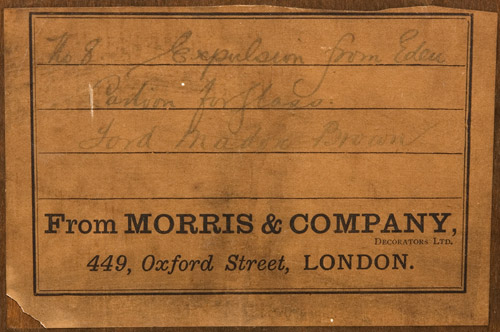 No 8. Expulsion from Eden
Cartion for glass.
Ford Madox Brown
From MORRIS & COMPANY,
DECORATORS LTD.
449, Oxford Street, LONDON.